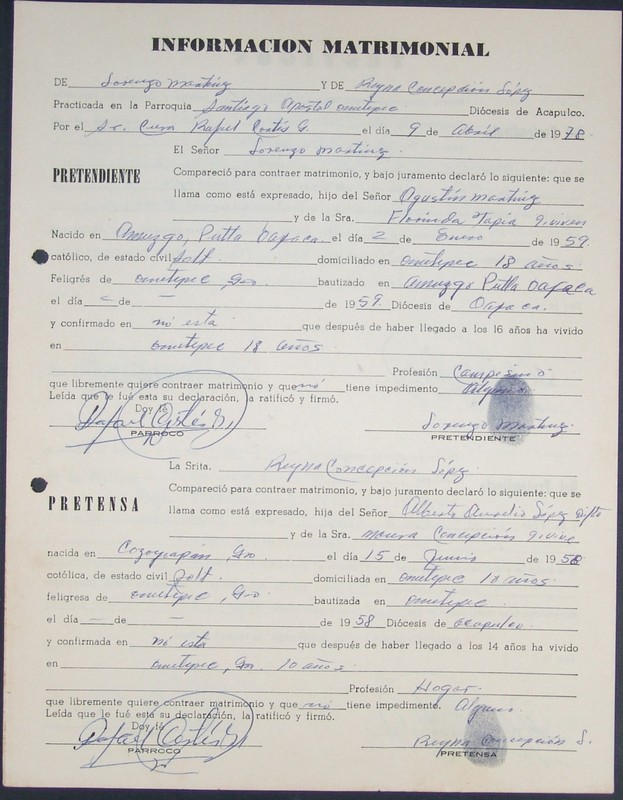 INFORMACION MATRIMONIAL
DE Lorenzo Martínez Y DE Reyna Concepción López
Practicada en la Parroquia Santiago Apostol Ometepec Diócesis de Acapulco.
Por el Sr. Cura Rafael Cortés G. el día 9 de Abril de 1978.
El Señor Lorenzo Martínez.
PRETENDIENTE
Compareció para contraer matrimonio, y bajo juramento declaró lo siguiente: que se
llama como está expresado, hijo del Señor Agustín Martínez
y de la Sra. Florinda Tapia q. viven
Nacido en Amuzgo, Putla Oaxaca. el día 2 de Enero de 1959.
católico, de estado civil solt. domiciliado en Ometepec 18 años.
Feligrés de Ometepec, Gro. bautizado en Amuzgo Putla Oaxaca
el día - de - de 1959. Diócesis de Oaxaca.
y confirmado en no está que después de haber llegado a los 16 años ha vivido
en Ometepec 18 años.
Profesión Campesino
que libremente quiere contraer matrimonio y que no tiene impedimento Alguno.
Leída que le fué esta su declaración, la ratificó y firmó.
Doy fé
Rafael Cortés G.
PARROCO
Lorenzo Martínez.
PRETENDIENTE
La Srita. Reyna Concepción López.
PRETENSA
Compareció para contraer matrimonio, y bajo juramento declaró lo siguiente: que se
llama como está expresado, hijo del Señor Alberto Aurelio López Difto
y de la Sra. Maura Concepción q. vive
nacida en Cozoyoapán, Gro. el día 15 de Junio de 1958
cotólica, de estado civil solt. domiciliada en Ometepec 10 años.
feligresa de Ometepec, Gro bautizada en Ometepec.
el día - de - de 1958 Diócesis de Acapulco.
y confirmada en no está que después de haber llegado a los 14 años ha vivido
en Ometepec, Gro. 10 años.
Profesión Hogar.
que libremente quiere contraer matrimonio y que no tiene impedimento. Alguno.
Leída que le fué esta su declaración, la ratificó y firmó.
Doy fé
Rafael Cortés G.
PARROCO
Reyna Concepción S.
PRETENSA